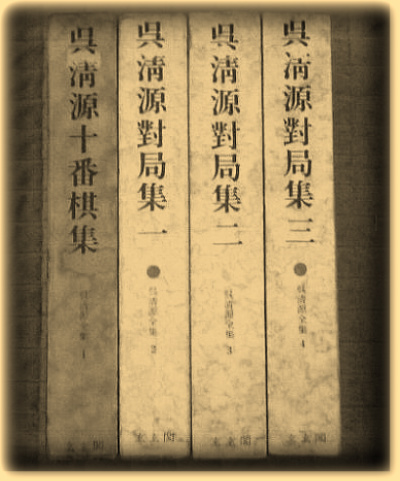 呉清源十番棋集
呉清源全集 1
玄玄閣
呉清源對局集 一
呉清源全集 2
玄玄閣
呉清源對局集 二
呉清源全集 3
玄玄閣
呉清源對局集 三
呉清源全集 4
玄玄閣